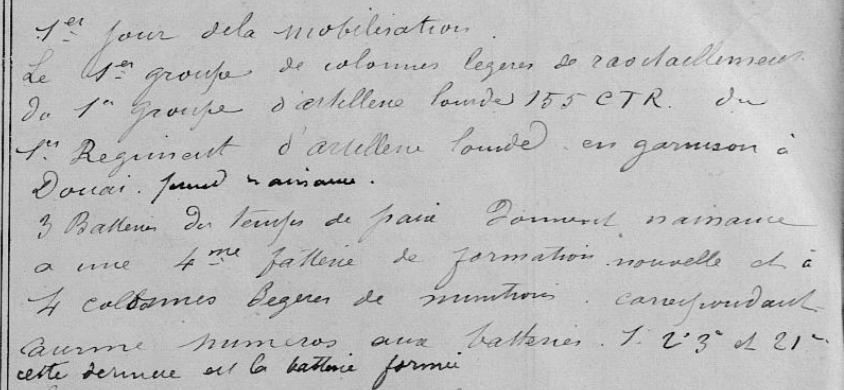 1er jour de la mobilisation.
Le 1er groupe de colonnes legeres de ravitaillement
du 1er groupe d'artillerie lourde 155 CTR. du
1er Regiment d'artillerie lourde en garnison à
Douai. prend naissance.
3 Batteries du temps de paix donnent naissance
a une 4me batterie de formation nouvelle et à
4 colonnes legeres de munitions. correspondant
au numeros aux batteries. 1. 2e 3e et 21e
cette derniere est la batterie formée